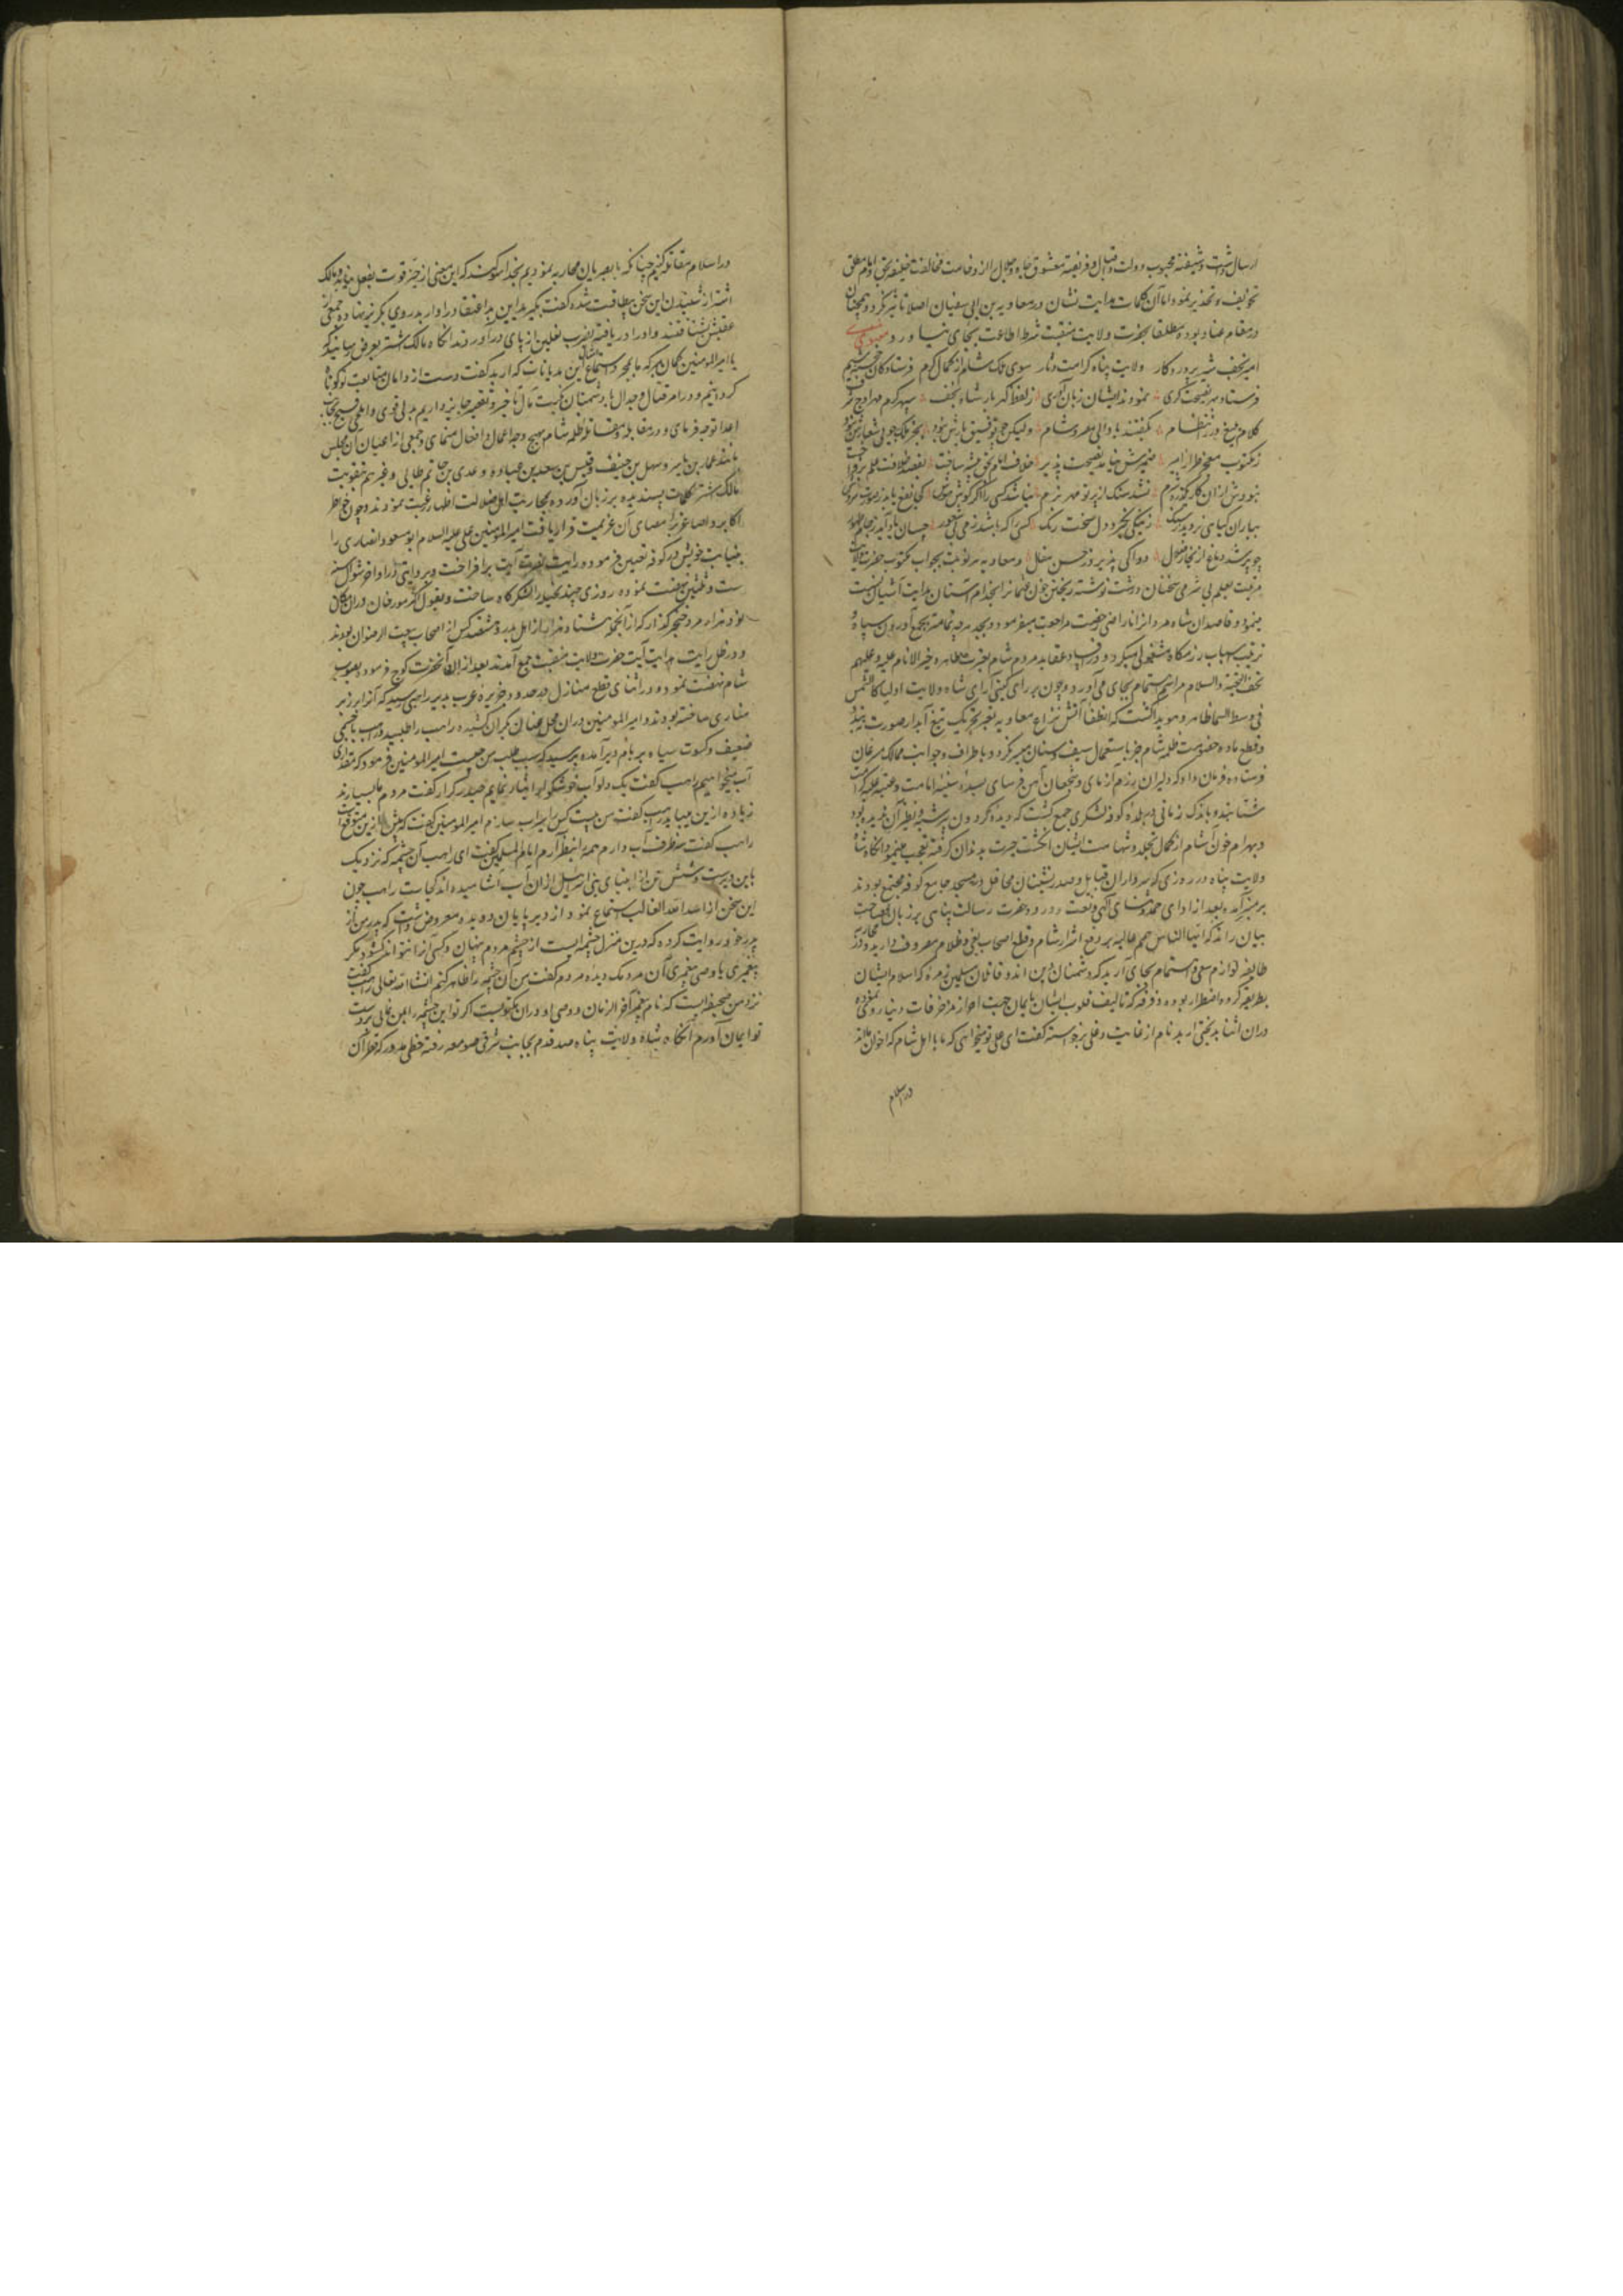 ارسال داشت و شیفته محبوب دولت و اقبال و فریفته معشوق جاه و جلال را از وخامت مخالفت خلیفه بحق و امام مطلق
تخویف و تحذیر نمود اما آن کلمات هدایت نشان در معاویه بن ابی سفیان اصلا تاثیر نکرد و همچنان
در مقام عناد بوده مطلقا بحضرت ولایت منقبت شرط اطاعت بجای نیاورد
امیر نجف شیر پروردگار ولایت پناه کرامت دثار سوی ملک شام از کمال کرم فرستاد
فرستاد بهر نصیحت گری نمودند ایشان زبان آوری ز لفظ گهربار شاه نجف سپهر کرم مهر اوج شرف
کلام بلیغ درر انتظام بگفتند با والی مصر و شام ولیکن چو توفیق یارش نبود
ز مکتوب معجز طراز امیر ضمیرش نیامد نصیحت پذیر خلاف امام بحق پیشه ساخت
نبودش از آن کار شرم نشد سنگ از پرتو مهر نرم
بباران گیاهی نروید ز سنگ ز نیکی نگیرد دل سخت رنگ کسی را که باشد ز می بی شعور
چو پر شد دماغ از بخار فضول دوا کی پذیرد ز حسن عقل و معاویه هر نوبت بجواب مکتوب حضرت ولایت
منقبت بقلم بی شرمی سخنان درشت نوشته ریختن خون عثمانرا بخدام آستان هدایت آشیان نسبت
مینمود و قاصدان شاه مردانرا ناراضی رخصت مراجعت میفرمود و بجد هرچه تمامتر بجمع آوردن سپاه و
ترتیب اسباب رزمگاه مشغولی میکرد و در فساد عقاید مردم شام بعترت طاهره خیر الانام علیه و علیهم
تحف التحیة والسلام مراسم اهتمام بجای می آورد و چون بر رای گیتی آرای شاه ولایت اولیا کالشمس
فی وسط السما ظاهر و هویدا گشت که انطفاء آتش نزاع معاویه بغیر تحریک تیغ آبدار صورت نبندد
و قطع ماده خصومت ظلمه شام جز باستعمال سیف و سنان میسر نگردد باطراف و جوانب ممالک مسرعان
فرستاده فرمان داد که دلیران رزم آزمای و شجعان آهن فرسای بسده سنیه امامت و عتبه علیه کرامت
شتابند و باندک زمانی در بلده کوفه لشکری جمع گشت که دیده گردون پیر شبیه و نظیر آن ندیده بود
و بهرام خون آشام از کمال تجلد و شهامت ایشان انگشت حیرت بدندان گرفته تعجب مینمود و آنگاه شاه
ولایت پناه در روزی که سرداران قبایل و صدرنشینان محافل در مسجد جامع کوفه مجتمع بودند
بر منبر آمده بعد از ادای حمد و ثنای الهی و نعت و درود حضرت رسالت پناهی بر زبان فصاحت
بیان راند که ایها الناس همم عالیه بر دفع اشرار شام و قطع اصحاب بغی و ظلام مصروف دارید و در
طایفه لوازم سعی و اهتمام بجای آرید که دشمنان دین اند و قاتلان مسلمین زمره که اسلام ایشان
بطریقه کره و اضطرار بوده و فرقه که تالیف قلوب ایشان بایمان جهت احراز مزخرفات دنیا روی نموده
دران اثنا بدبختی اربد نام از غایت دغلی برخواسته گفت ای علی تو میخواهی که ما با اهل شام که اخوان ما اند
در اسلام
در اسلام مقاتله کنیم چنانکه با بصریان محاربه نمودیم بخدا سوگند که این معنی از حیز قوت بفعل نیاید و مالک
اشتر از شنیدن این سخن بیطاقت شده گفت بگیرید این بد اعتقاد را و اربد روی بگریز نهاده جمعی از
عقبش شتافتند و او را دریافته بضرب نعلین از پای درآوردند آنگاه مالک اشتر بعرض رسانید که
یا امیر المومنین گمان مبر که ما بمجرد استماع این هذیانات که اربد گفت دست از دامان متابعت تو کوتاه
گردانیم و در امر قتال و جدال با دشمنان نکبت مآل تاخیر و تقصیر جایز داریم بدلی قوی و املی فسیح بجانب
اعدا توجه فرمای و در مقابله و مقاتله ظلمه شام بهیچ وجه اهمال و اغفال منمای و جمعی از اعیان آن مجلس
مانند عمار بن یاسر و سهل بن حنیف و قیس بن سعد بن عباده و عدی بن حاتم طایی و غیرهم بتقویت
مالک اشتر کلمات پسندیده بر زبان آورده بمحاربت اهل ضلالت اظهار رغبت نمودند و چون خواطر
اکابر و اصاغر بر امضای آن عزیمت قرار یافت امیر المومنین علی علیه السلام ابو مسعود انصاری را
بنیابت خویش در کوفه تعیین فرموده رایت نصرت آیت برافراخت و بروایتی در اواخر شوال سنه
ست و ثلثین نهضت نموده روزی چند نخیله را لشکرگاه ساخت و بقول اکثر مورخان دران مکان
نود هزار مرد خنجرگذار که از آنجمله هشتاد نفر از اهل بدر و هشتصد کس از اصحاب بیعت الرضوان بودند
و در ظل رایت هدایت آیت حضرت ولایت منقبت جمع آمدند بعد ازان آنحضرت کوچ فرموده بصوب
شام نهضت نمود و در اثنای قطع منازل در حدود جزیره عرب بدیر راهبی رسید که آنرا بر زبر
مناری ساخته بودند و امیر المومنین دران محل عنان یکران کشیده راهب را طلبید راهب با جسمی
ضعیف و کسوت سیاه بر بام دیر آمده پرسید که سبب طلب من چیست امیر المومنین فرمود که مقداری
آب میخواهیم راهب گفت یک دلو آب خوشگوار ایثار نمایم حیدر کرار گفت مردم ما بسیارند
زیاده ازین میباید راهب گفت من بیست کس را سیراب سازم امیر المومنین گفت که بیش ازین متوقع است
راهب گفت سه ظرف آب دارم همه را بنظر آرم امام المسلمین گفت ای راهب آن چشمه که نزدیک
باین دیر است و شش تن از انبیای بنی اسرائیل ازان آب آشامیده اند کجاست راهب چون
این سخن از اسد الله الغالب استماع نمود از دیر پایان دویده معروض داشت که پدر من از
پدر خود روایت کرده که درین منزل چشمه ایست از چشم مردم پنهان و کسی آنرا نتواند گشود مگر
پیغمبری یا وصی پیغمبری آن مردمک دیده مردم گفت من آن چشمه را ظاهر کنم انشاء الله تعالی راهب گفت
نزد من صحیفه ایست که نام پیغمبر آخر الزمان و وصی او دران مکتوبست اگر تو این چشمه را بمن نمائی بر دست
تو ایمان آورم آنگاه شاه ولایت پناه صد قدم بجانب شرقی صومعه رفته خطی مدور که قطر آن